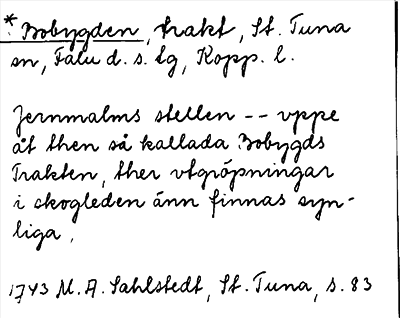 * Bobygden, trakt, St. Tuna
sn, Falu d. s. lg, Kopp. l.
Jernmalms stellen -- vppe
åt then så kallada Bobygds
Trakten, ther vtgröpningar
i skogleden änn finnas syn-
liga.
1743 M. A. Sahlstedt, St. Tuna, s. 83